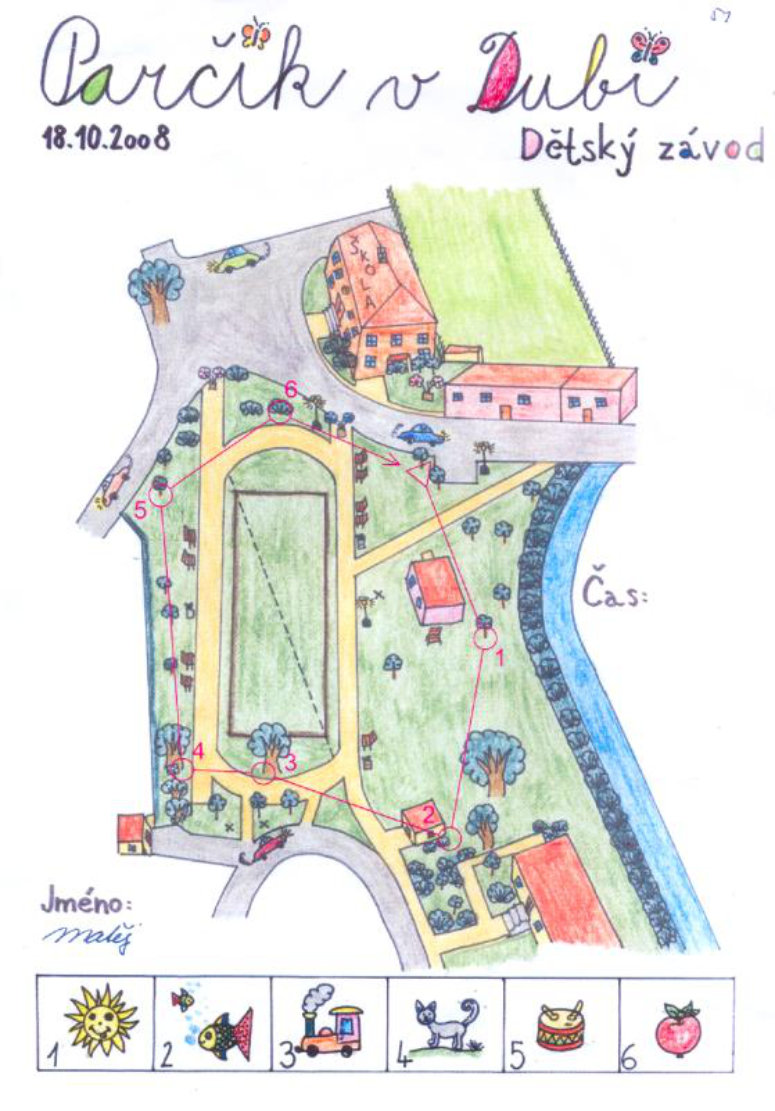 Parčík v Dubí
18.10.2008
Dětský závod
ŠKOLA
6
5
1
4
3
2
Čas:
Jméno:
Matěj
1
2
3
4
5
6